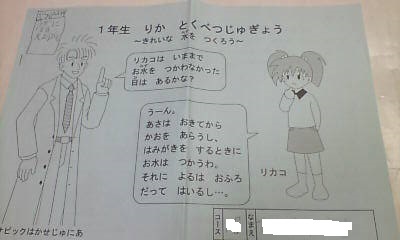 1年生 りか とくべつじゅぎょう
～きれいな 水を つくろう～
リカコは いままで
お水を つかわなかった
日は あるかな？
うーん。
あさは おきてから
かおを あらうし、
はみがきを するときに
お水は つかうわ。
それに よるは おふろ
だって はいるし…。
リカコ
コース
なまえ
ナピックはかせじゅにあ